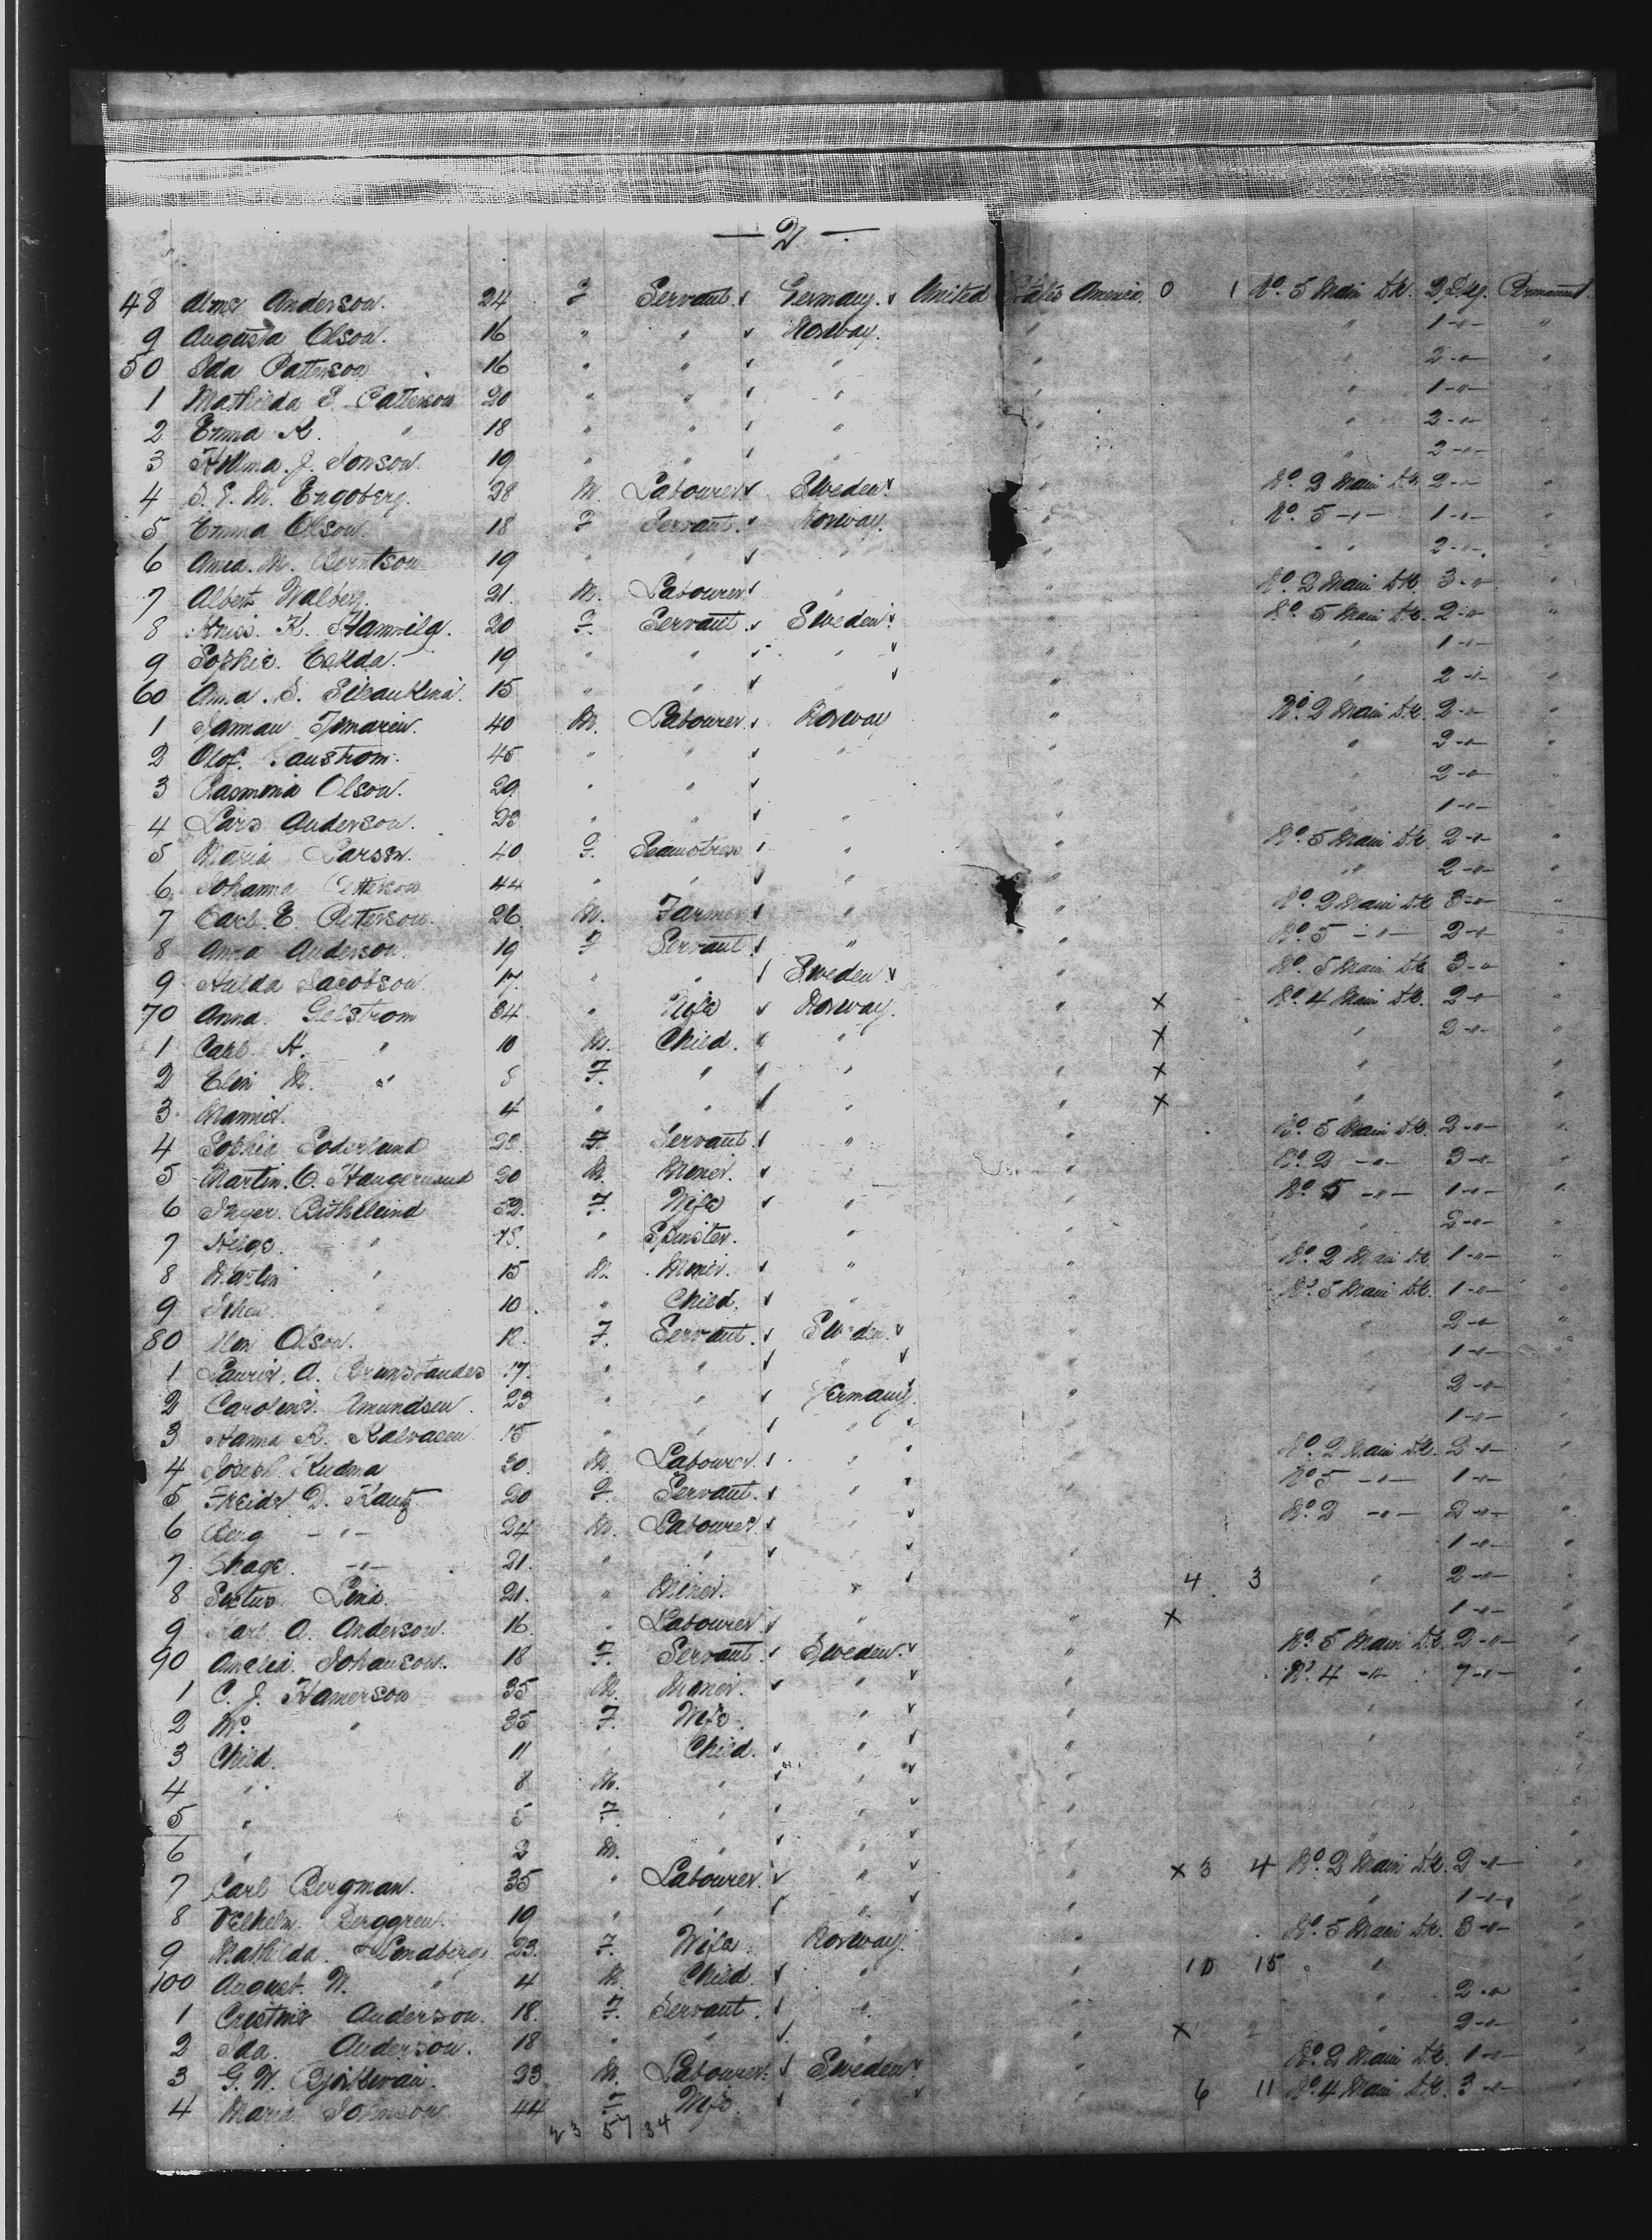 — 2 —
48 Alma Anderson. 24 F Servant. Germany. United States America. 0 1 No. 5 Main Dk. 2 Bdg. Permanent.
9 Augusta Olson. 16 " " Norway. " " 1 -"- "
50 Ida Patterson 16 " " " " " 2 -"- "
1 Mathilda E. Patterson 20 " " " " " 1 -"- "
2 Emma K. " 18 " " " " " 2 -"- "
3 Hilma. J. Jonson. 19 " " " " " 2 -"-
4 S. E. M. Engoberg. 28 M. Labourer Sweden. " No. 2 Main Dk. 2 -"- "
5 Emma Olson. 18 F Servant. Norway. " No. 5 -"- 1 -"- "
6 Anna. M. Berntson 19 " " " " " 2 -"- "
7 Albert Walberg. 21. M. Labourer " " No. 2 Main Dk. 3 -"- "
8 K. 20 F. Servant. Sweden. " No. 5 Main Dk. 2 -"- "
9 Sophie. 19 " " " " " 1 -"-
60 Anna. S. 15 " " " " 2 -"- "
1 40 M. Labourer. Norway " No. 2 Main Dk. 2 -"- "
2 Olof. 45 " " " " 2 -"- "
3 Olson. 29. " " " " 2 -"-
4 Lars Anderson. 28 " " " " 1 -"-
5 Maria Larson. 40 F. Seamstress " " No. 5 Main Dk. 2 -"- "
6 Johanna 44 " " " " 2 -"- "
7 Carl. E. Peterson. 26. M. Farmer " " No. 2 Main Dk 3 -"- "
8 Anna Anderson. 19 F Servant. " " No. 5 -"- 2 -"- "
9 Hulda Jacobson. 17. " " Sweden. " No. 5 Main Dk 3 -"- "
70 Anna. Gelstrom 34 " Wife Norway. " x No. 4 Main Dk. 2 -"- "
1 Carl. A. " 10 M. Child. " " x " 2 -"- "
2 Elin M. " 8 F. " " " x " "
3 4 " " " " x " "
4 Sophia Soderlund 28. F Servant. " " No. 5 Main Dk. 2 -"- "
5 Martin. C. 20 M. Miner. " " No. 2 -"- 3 -"- "
6 Inger. 52. F. Wife " " No. 5 -"- 1 -"- "
7 Helge. " 18. " Spinster. " " " 2 -"- "
8 Martin " 15 M. Miner. " " No. 2 Main Dk. 1 -"- "
9 " 10. " Child. " " No. 5 Main Dk. 1 -"- "
80 Olson. F. Servant. Sweden. " " 2 -"- "
1 A. 17. " " " 1 -"- "
2 Amundsen. 23 " " Germany. " " 2 -"- "
3 Hanna K. 15 " " " 1 -"- "
4 Joseph. Kudma 30. M. Labourer. " " No. 2 Main Dk. 2 -"- "
5 D. Kautz 20 F. Servant. " " No. 5 -"- 1 -"- "
6 Berg -"- 24 M. Labourer " " No. 2 -"- 2 -"- "
7 -"- 21. " " " 1 -"- "
8 21. " Miner. " 4 3 " 2 -"- "
9 Karl A. Anderson. 16. " Labourer " " x " 1 -"- "
90 Amelia. Johanson. 18 F. Servant. Sweden. " No. 5 Main Dk. 2 -"- "
1 C. J. Hamerson 35 M. Miner. " " No. 4 -"- 7 -"- "
2 " 35 F. Wife. " " " "
3 Child. 11 " Child. " " " "
4 " 8 M. " " " "
5 " 5 F. " " " "
6 " 2 M. " " " "
7 Carl Bergman. 35 " Labourer. " " x 3 4 No. 2 Main Dk. 2 -"- "
8 Vilhelm. Berggren. 19 " " " " " 1 -"- "
9 Mathilda. Lindberg. 23. F. Wife. Norway. " No. 5 Main Dk. 3 -"- "
100 August. W. " 4 M. Child " " 10 15 " "
1 Anderson. 18. F. Servant. " " " 2 -"- "
2 Ida. Anderson. 18 " " " " x 2 " 2 -"- "
3 G. W. 23 M. Labourer. Sweden. " No. 2 Main Dk. 1 -"- "
4 Maria Johnson. 44 F. Wife. " " 6 11 No. 4 Main Dk. 3 -"- "
23 57 34